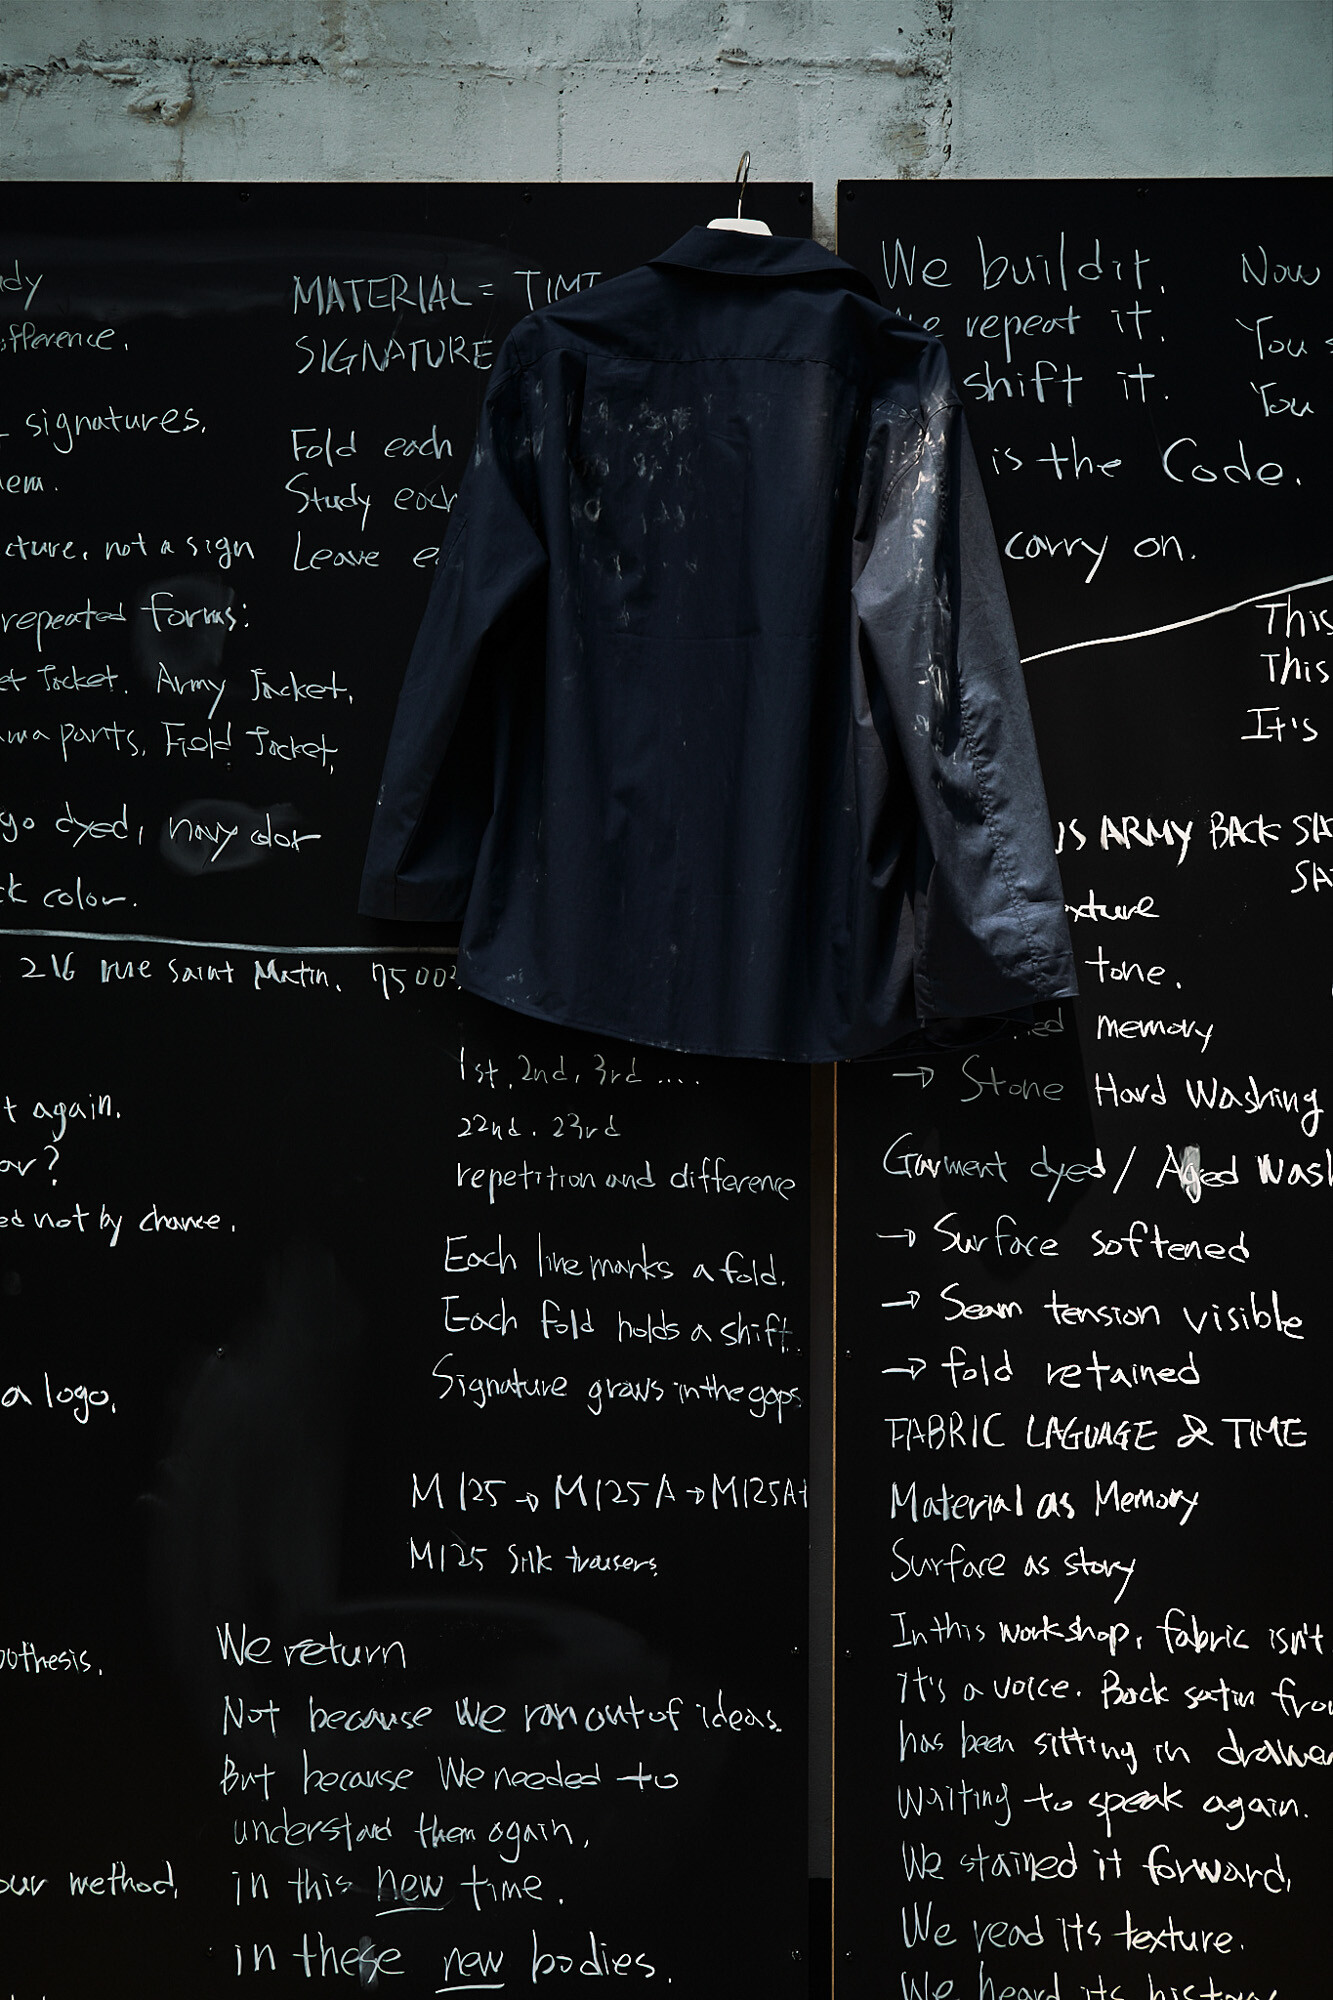 MATERIAL = TIM
SIGNATURE
signatures.
Fold each
Study each
Leave
not a sign
repeated forms:
Jacket. Army Jacket,
pants. Field Jacket,
dyed, navy color
color.
216 rue Saint Matin. 7500
again.
not by chance.
a logo.
1st, 2nd, 3rd ....
22nd. 23rd
repetition and difference
Each line marks a fold.
Each fold holds a shift.
Signature grows in the gaps
M125 → M125A → M125A+
M125 Silk trousers.
We return
Not because we ran out of ideas.
But because We needed to
understand them again,
our method, in this new time.
in these new bodies.
We build it.
repeat it.
shift it.
is the Code.
carry on.
Now
You
You
This
This
It's
US ARMY BACK
tone.
memory
→ Stone Hard Washing
Garment dyed / Aged Wash
→ Surface softened
→ Seam tension visible
→ fold retained
FABRIC LAGUAGE & TIME
Material as Memory
Surface as story
In this workshop, fabric isn't
It's a voice. Back satin from
has been sitting in drawer
waiting to speak again.
We stained it forward,
We read its texture.
We heard its history